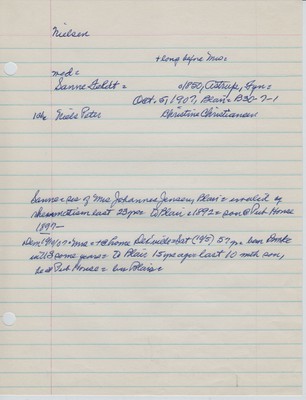 Nielsen
+ long before Mrs=
md=
Sanne Feldt = o1850, Astrup, Fyn=
Oct. 5, 1907, Blair= B30-7-1
1ch= Niels Peter Christine Christiansen
Sanne= res of Mrs Johannes Jensen, Blair= invalid by
rheumatism last 23yrs= to Blair = 1892= son @ Pub House
1897-
Dem 19/9/07= Mrs= +@home Sat (5) 57 yr= born
some years= to Blair 15yrs ago last 10 with son,
he @ Pub House= bur Blair=